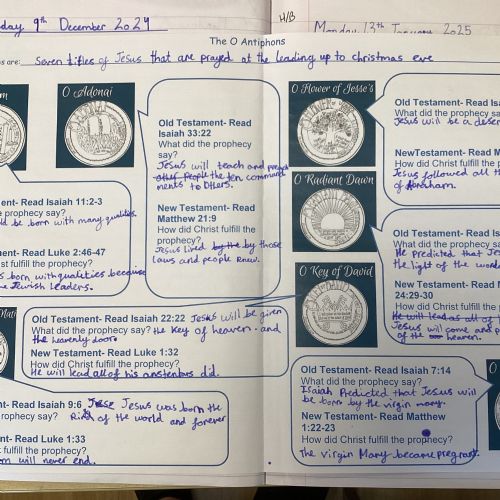 day 9th December 2024
H/B
Monday 13th January 2025
The O Antiphons
s are: Seven titles of Jesus that are prayed at the leading up to christmas eve
O Adonai
Old Testament- Read
Isaiah 33:22
What did the prophecy
say?
Jesus will teach and
other people the ten command
ments to Others.
New Testament- Read
Matthew 21:9
How did Christ fulfill the
prophecy?
Jesus lived by the by those
laws and people knew.
ent- Read Isaiah 11:2-3
e prophecy say?
ld be born with many qualities
ent- Read Luke 2:46-47
st fulfill the prophecy?
s born with qualities because
e Jewish Leaders.
O Flower of Jesse's
Old Testament- Rea
What did the proph
Jesus will be a deser
New Testament- Re
How did Christ fulfill
Jesus followed all th
of Abraham.
O Radiant Dawn
Old Testament- Read Is
What did the prophecy sa
He Predicted that Jes
the light of the world
New Testament- Read M
24:29-30
How did Christ fulfill the p
He will lead as all of
Jesus will come and
of the heaven.
O Key of David
Old Testament- Read Isaiah 22:22 Jesus will be given
What did the prophecy say? the Key of heaven and
the heavenly doors
New Testament- Read Luke 1:32
How did Christ fulfill the prophecy?
He will lead all of his anstentors did.
ent- Read Isaiah 9:6 Jesus was born the
prophecy say? King of the world and forever
nt- Read Luke 1:33
t fulfill the prophecy?
om will never end.
Old Testament- Read Isaiah 7:14
What did the prophecy say?
Isaiah Predicted that Jesus will
be born by the virgin mary.
New Testament- Read Matthew
1:22-23
How did Christ fulfill the prophecy?
the virgin Mary became pregnant.
O